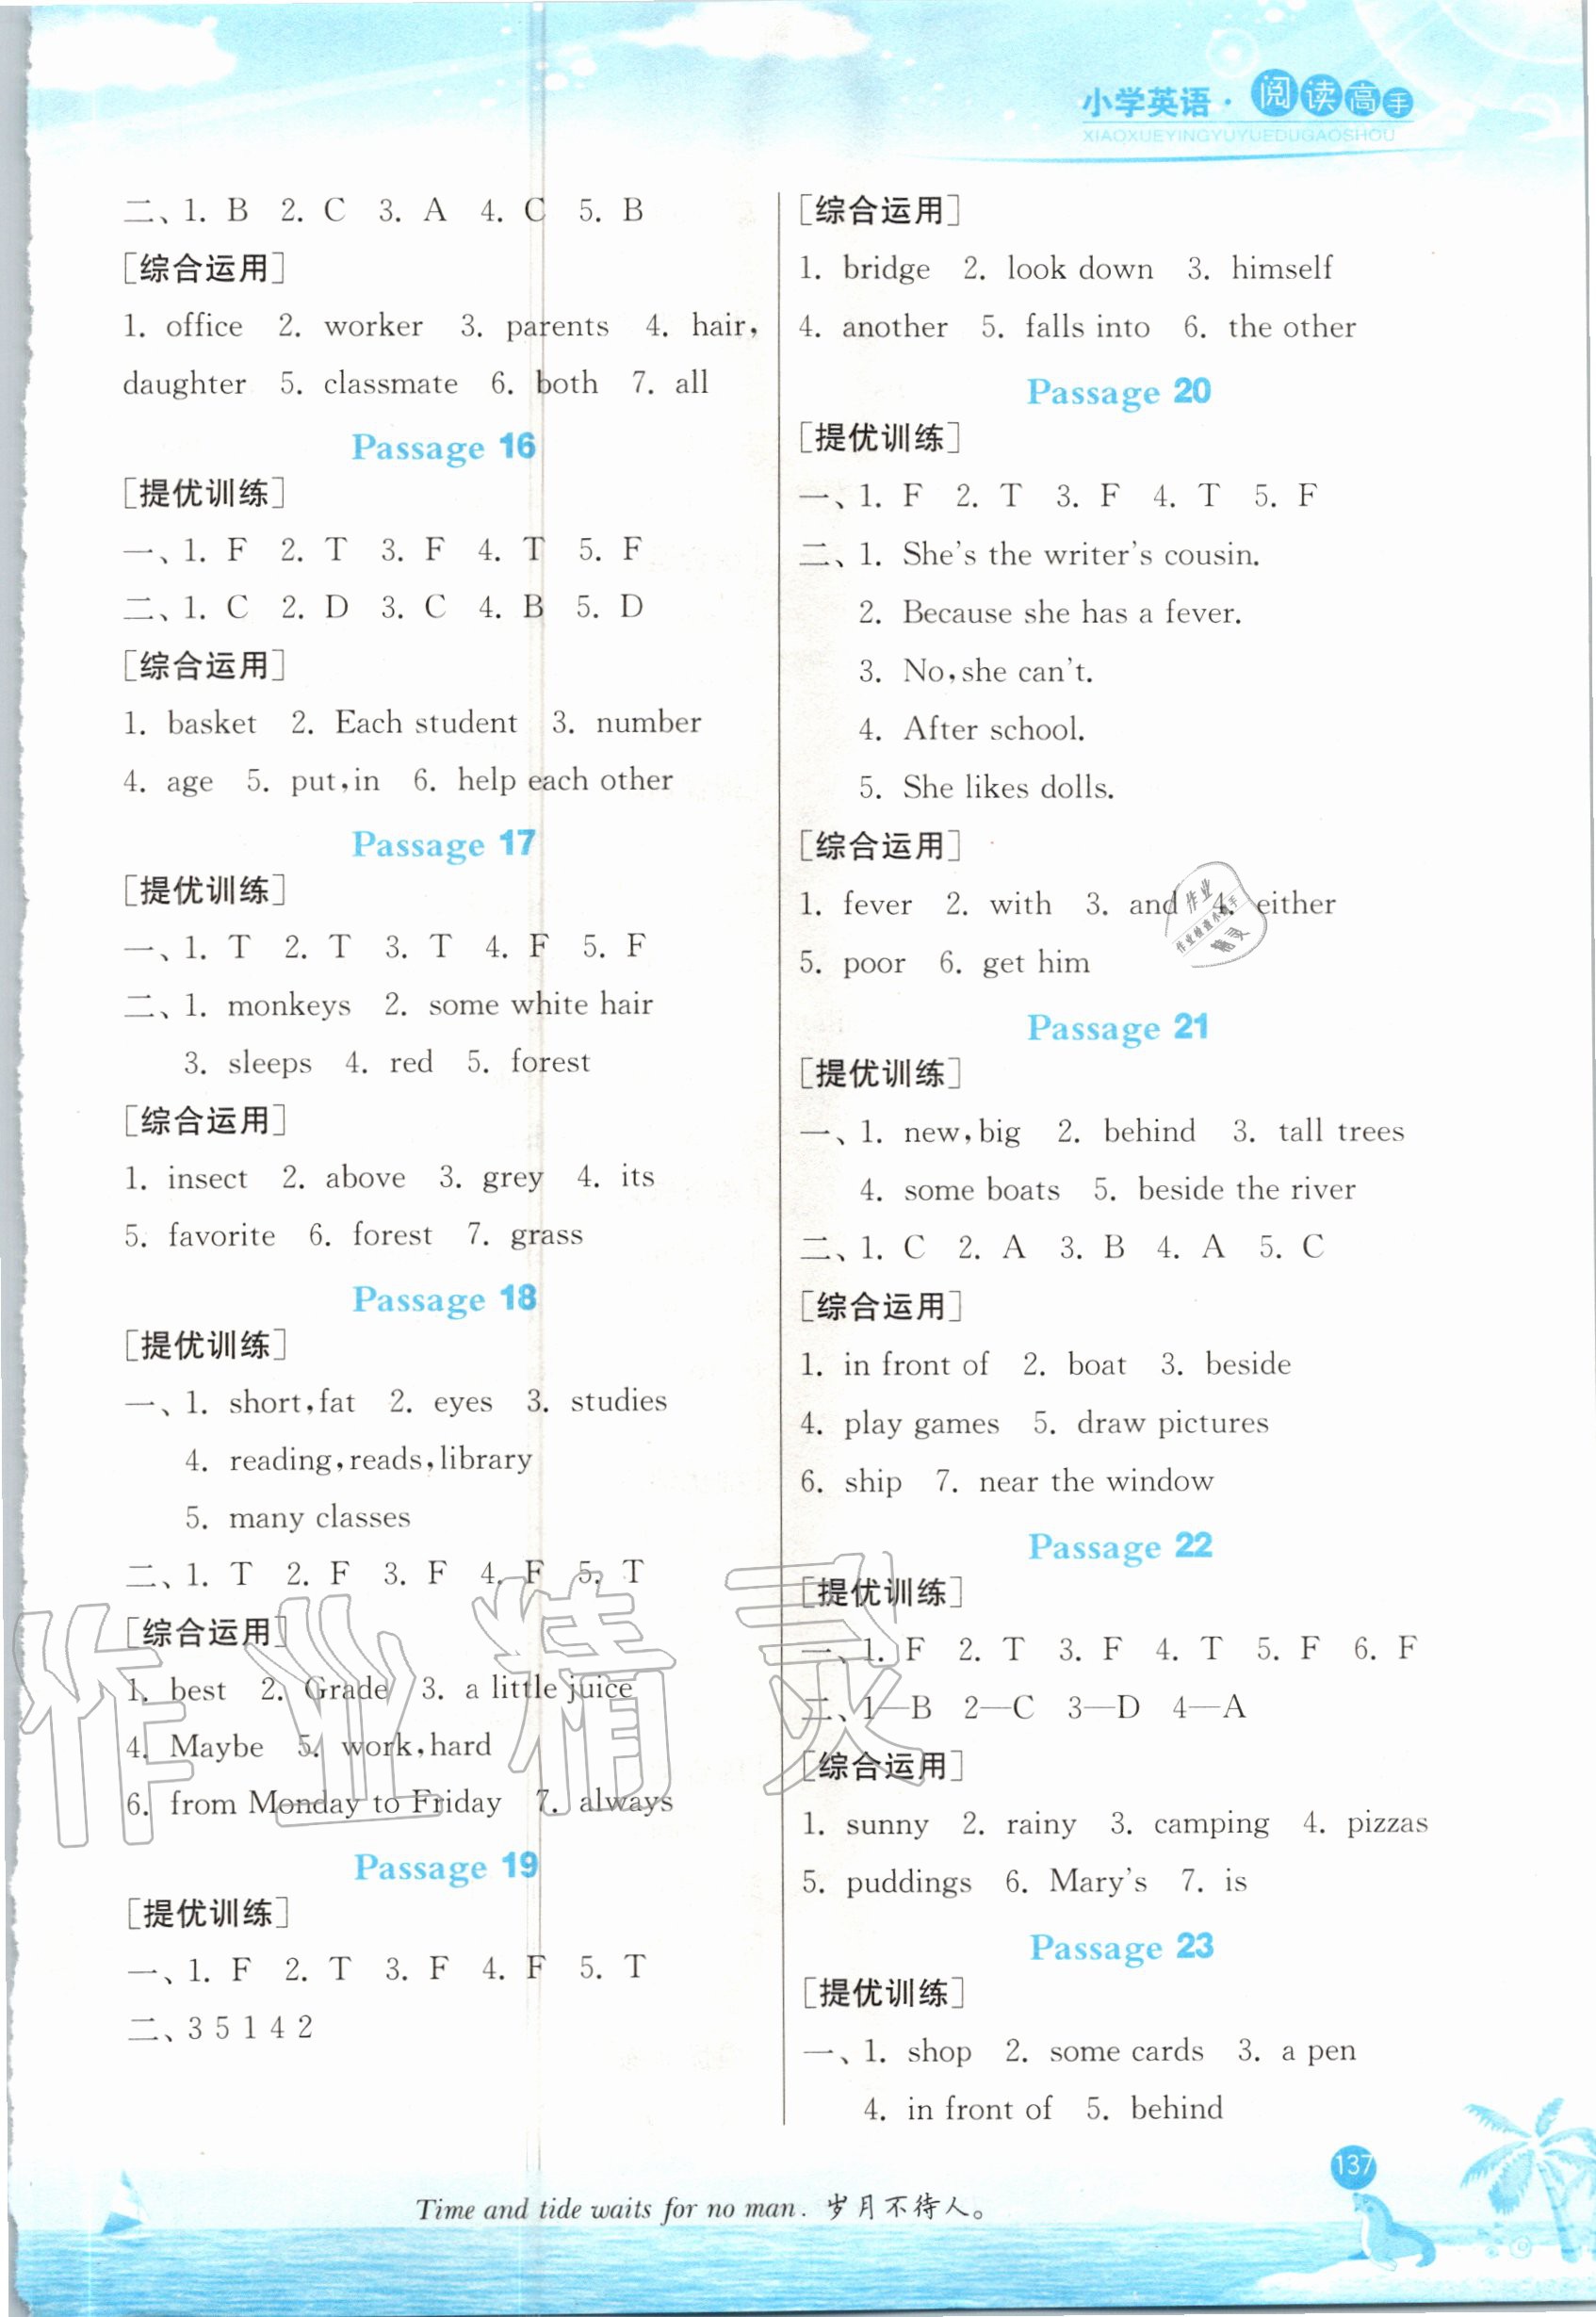 小学英语·阅读高手
XIAOXUEYINGYUYUEDUGAOSHOU
二、1. B 2. C 3. A 4. C 5. B
[综合运用]
1. office 2. worker 3. parents 4. hair,
daughter 5. classmate 6. both 7. all
Passage 16
[提优训练]
一、1. F 2. T 3. F 4. T 5. F
二、1. C 2. D 3. C 4. B 5. D
[综合运用]
1. basket 2. Each student 3. number
4. age 5. put,in 6. help each other
Passage 17
[提优训练]
一、1. T 2. T 3. T 4. F 5. F
二、1. monkeys 2. some white hair
3. sleeps 4. red 5. forest
[综合运用]
1. insect 2. above 3. grey 4. its
5. favorite 6. forest 7. grass
Passage 18
[提优训练]
一、1. short,fat 2. eyes 3. studies
4. reading,reads,library
5. many classes
二、1. T 2. F 3. F 4. F 5. T
[综合运用]
1. best 2. Grade 3. a little juice
4. Maybe 5. work,hard
6. from Monday to Friday 7. always
Passage 19
[提优训练]
一、1. F 2. T 3. F 4. F 5. T
二、3 5 1 4 2
[综合运用]
1. bridge 2. look down 3. himself
4. another 5. falls into 6. the other
Passage 20
[提优训练]
一、1. F 2. T 3. F 4. T 5. F
二、1. She's the writer's cousin.
2. Because she has a fever.
3. No,she can't.
4. After school.
5. She likes dolls.
[综合运用]
1. fever 2. with 3. and 4. either
5. poor 6. get him
Passage 21
[提优训练]
一、1. new,big 2. behind 3. tall trees
4. some boats 5. beside the river
二、1. C 2. A 3. B 4. A 5. C
[综合运用]
1. in front of 2. boat 3. beside
4. play games 5. draw pictures
6. ship 7. near the window
Passage 22
[提优训练]
一、1. F 2. T 3. F 4. T 5. F 6. F
二、1—B 2—C 3—D 4—A
[综合运用]
1. sunny 2. rainy 3. camping 4. pizzas
5. puddings 6. Mary's 7. is
Passage 23
[提优训练]
一、1. shop 2. some cards 3. a pen
4. in front of 5. behind
作业精灵
137
Time and tide waits for no man. 岁月不待人。